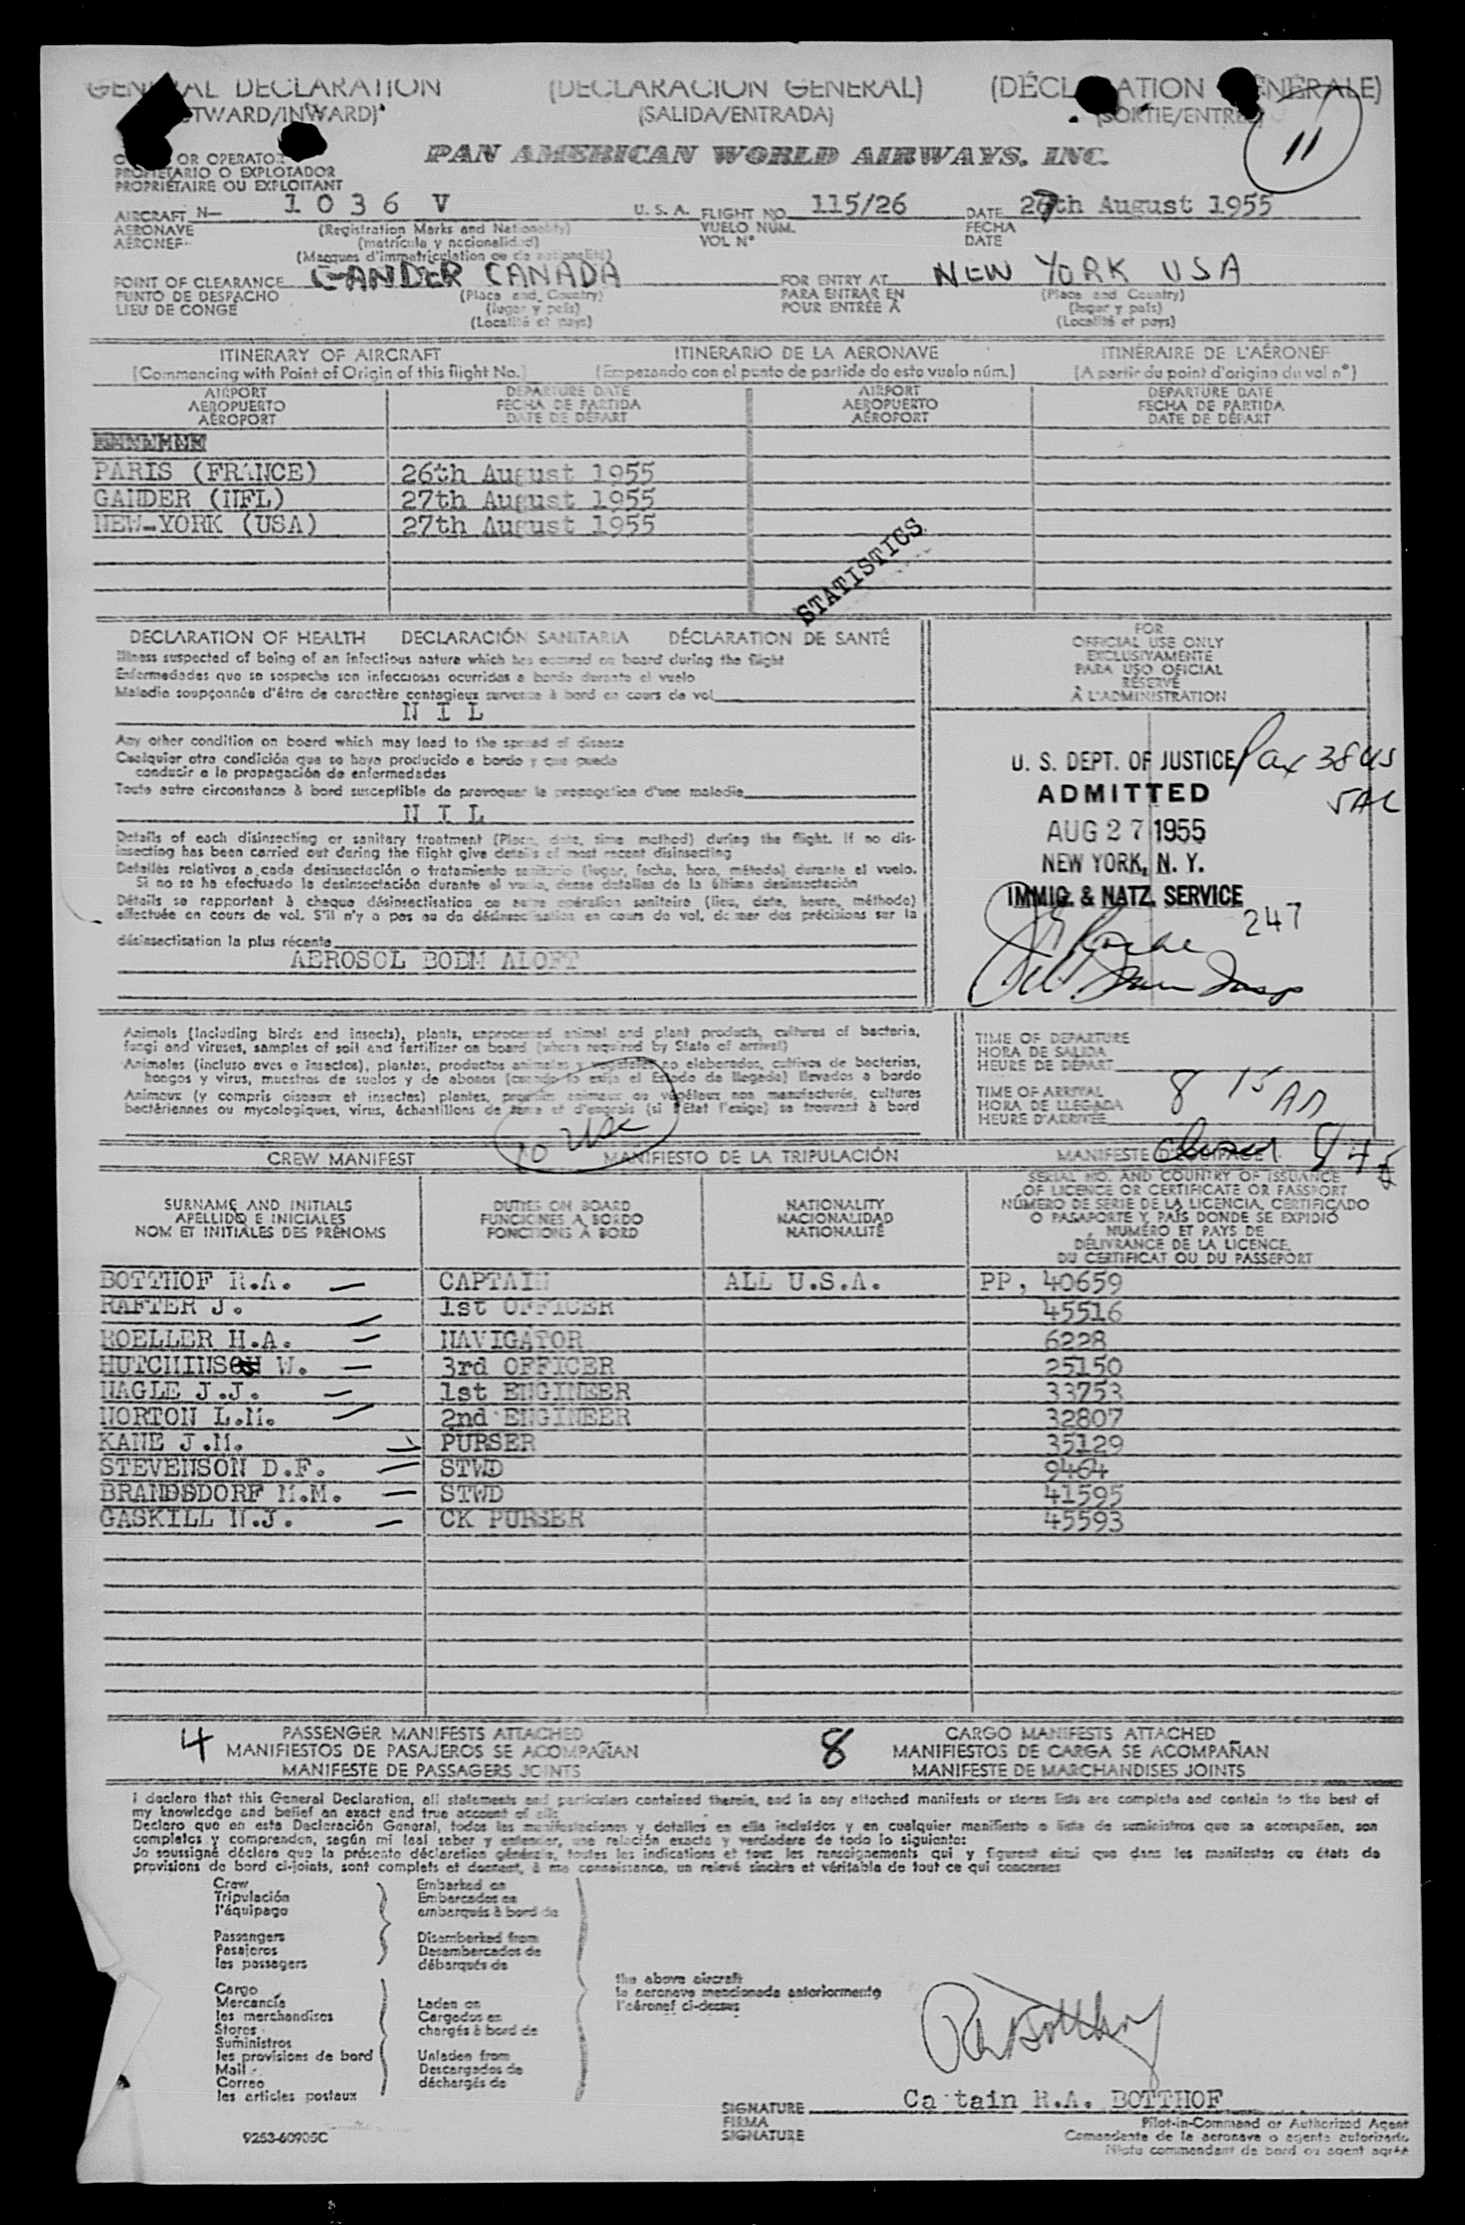 GENERAL DECLARATION (DECLARACION GENERAL) (DÉCLARATION GÉNÉRALE)
(OUTWARD/INWARD) (SALIDA/ENTRADA) (SORTIE/ENTRÉE)
11
OWNER OR OPERATOR
PROPIETARIO O EXPLOTADOR
PROPRIÉTAIRE OU EXPLOITANT
PAN AMERICAN WORLD AIRWAYS, INC.
AIRCRAFT N— 1 0 3 6 V U. S. A. FLIGHT NO. 115/26 DATE 27th August 1955
AERONAVE (Registration Marks and Nationality) VUELO NÚM. FECHA
AÉRONEF (matrícula y nacionalidad) VOL N° DATE
(Marques d'immatriculation ou de nationalité)
POINT OF CLEARANCE GANDER CANADA FOR ENTRY AT NEW YORK USA
PUNTO DE DESPACHO (Place and Country) PARA ENTRAR EN (Place and Country)
LIEU DE CONGÉ (lugar y país) POUR ENTRÉE À (lugar y país)
(Localité et pays) (Localité et pays)
ITINERARY OF AIRCRAFT ITINERARIO DE LA AERONAVE ITINÉRAIRE DE L'AÉRONEF
(Commencing with Point of Origin of this flight No.) (Empezando con el punto de partida de este vuelo núm.) (A partir du point d'origine du vol n°)
AIRPORT DEPARTURE DATE AIRPORT DEPARTURE DATE
AEROPUERTO FECHA DE PARTIDA AEROPUERTO FECHA DE PARTIDA
AÉROPORT DATE DE DÉPART AÉROPORT DATE DE DÉPART
PARIS (FRANCE) 26th August 1955
GANDER (NFL) 27th August 1955
NEW-YORK (USA) 27th August 1955
STATISTICS
DECLARATION OF HEALTH DECLARACIÓN SANITARIA DÉCLARATION DE SANTÉ
Illness suspected of being of an infectious nature which has occurred on board during the flight
Enfermedades que se sospecha son infecciosas ocurridas a bordo durante el vuelo
Maladie soupçonnée d'être de caractère contagieux survenue à bord en cours de vol
N I L
Any other condition on board which may lead to the spread of disease
Cualquier otra condición que se haya producido a bordo y que pueda
conducir a la propagación de enfermedades
Toute autre circonstance à bord susceptible de provoquer la propagation d'une maladie
N I L
Details of each disinsecting or sanitary treatment (Place, date, time method) during the flight. If no dis-
insecting has been carried out during the flight give details of most recent disinsecting
Detalles relativos a cada desinsectación o tratamiento sanitario (lugar, fecha, hora, método) durante el vuelo.
Si no se ha efectuado la desinsectación durante el vuelo, dense detalles de la última desinsectación
Détails se rapportant à chaque désinsectisation ou autre opération sanitaire (lieu, date, heure, méthode)
effectuée en cours de vol. S'il n'y a pas eu de désinsectisation en cours de vol, donner des précisions sur la
désinsectisation la plus récente
AEROSOL BOEM ALOFT
FOR
OFFICIAL USE ONLY
EXCLUSIVAMENTE
PARA USO OFICIAL
RÉSERVÉ
À L'ADMINISTRATION
U. S. DEPT. OF JUSTICE
ADMITTED
AUG 27 1955
NEW YORK, N. Y.
IMMIG. & NATZ. SERVICE
Pax 38 US
5 AL
247
Animals (including birds and insects), plants, unprocessed animal and plant products, cultures of bacteria,
fungi and viruses, samples of soil and fertilizer on board (where required by State of arrival)
Animales (incluso aves e insectos), plantas, productos animales y vegetales no elaborados, cultivos de bacterias,
hongos y virus, muestras de suelos y de abonos (cuando lo exija el Estado de llegada) llevados a bordo
Animaux (y compris oiseaux et insectes) plantes, produits animaux ou végétaux non manufacturés, cultures
bactériennes ou mycologiques, virus, échantillons de terre et d'engrais (si l'État l'exige) se trouvant à bord
TIME OF DEPARTURE
HORA DE SALIDA
HEURE DE DÉPART
TIME OF ARRIVAL
HORA DE LLEGADA
HEURE D'ARRIVÉE
8 15 AM
CREW MANIFEST MANIFIESTO DE LA TRIPULACIÓN MANIFESTE D'ÉQUIPAGE
SURNAME AND INITIALS
APELLIDO E INICIALES
NOM ET INITIALES DES PRÉNOMS
DUTIES ON BOARD
FUNCIONES A BORDO
FONCTIONS À BORD
NATIONALITY
NACIONALIDAD
NATIONALITÉ
SERIAL NO. AND COUNTRY OF ISSUANCE
OF LICENCE OR CERTIFICATE OR PASSPORT
NÚMERO DE SERIE DE LA LICENCIA, CERTIFICADO
O PASAPORTE Y PAÍS DONDE SE EXPIDIÓ
NUMÉRO ET PAYS DE
DÉLIVRANCE DE LA LICENCE,
DU CERTIFICAT OU DU PASSEPORT
BOTTHOF R.A. CAPTAIN ALL U.S.A. PP, 40659
RAFTER J. 1st OFFICER 45516
ROELLER H.A. NAVIGATOR 6228
HUTCHINSON W. 3rd OFFICER 25150
NAGLE J.J. 1st ENGINEER 33753
NORTON L.M. 2nd ENGINEER 32807
KANE J.M. PURSER 35129
STEVENSON D.F. STWD 9464
BRANDSDORF M.M. STWD 41595
GASKILL N.J. CK PURSER 45593
4 PASSENGER MANIFESTS ATTACHED 8 CARGO MANIFESTS ATTACHED
MANIFIESTOS DE PASAJEROS SE ACOMPAÑAN MANIFIESTOS DE CARGA SE ACOMPAÑAN
MANIFESTE DE PASSAGERS JOINTS MANIFESTE DE MARCHANDISES JOINTS
I declare that this General Declaration, all statements and particulars contained therein, and in any attached manifests or stores lists are complete and contain to the best of
my knowledge and belief an exact and true account of all:
Declaro que en esta Declaración General, todos las manifestaciones y detalles en ella incluídos y en cualquier manifiesto o lista de suministros que se acompañen, son
completos y comprenden, según mi leal saber y entender, una relación exacta y verdadera de todo lo siguiente:
Je soussigné déclare que la présente déclaration générale, toutes les indications et tous les renseignements qui y figurent ainsi que dans les manifestes ou états de
provisions de bord ci-joints, sont complets et donnent, à ma connaissance, un relevé sincère et véritable de tout ce qui concerne:
Crew Embarked on
Tripulación Embarcados en
l'équipage embarqués à bord de
Passengers Disembarked from
Pasajeros Desembarcados de
les passagers débarqués de
the above aircraft
la aeronave mencionada anteriormente
l'aéronef ci-dessus
Cargo
Mercancía Laden on
les merchandises Cargados en
Stores chargés à bord de
Suministros
les provisions de bord Unladen from
Mail Descargados de
Correo déchargés de
les articles postaux
RABotthof
SIGNATURE Ca tain R.A. BOTTHOF
FIRMA Pilot-in-Command or Authorized Agent
SIGNATURE Comandante de la aeronave o agente autorizado
Pilote commandant de bord ou agent agréé
9253-60905C